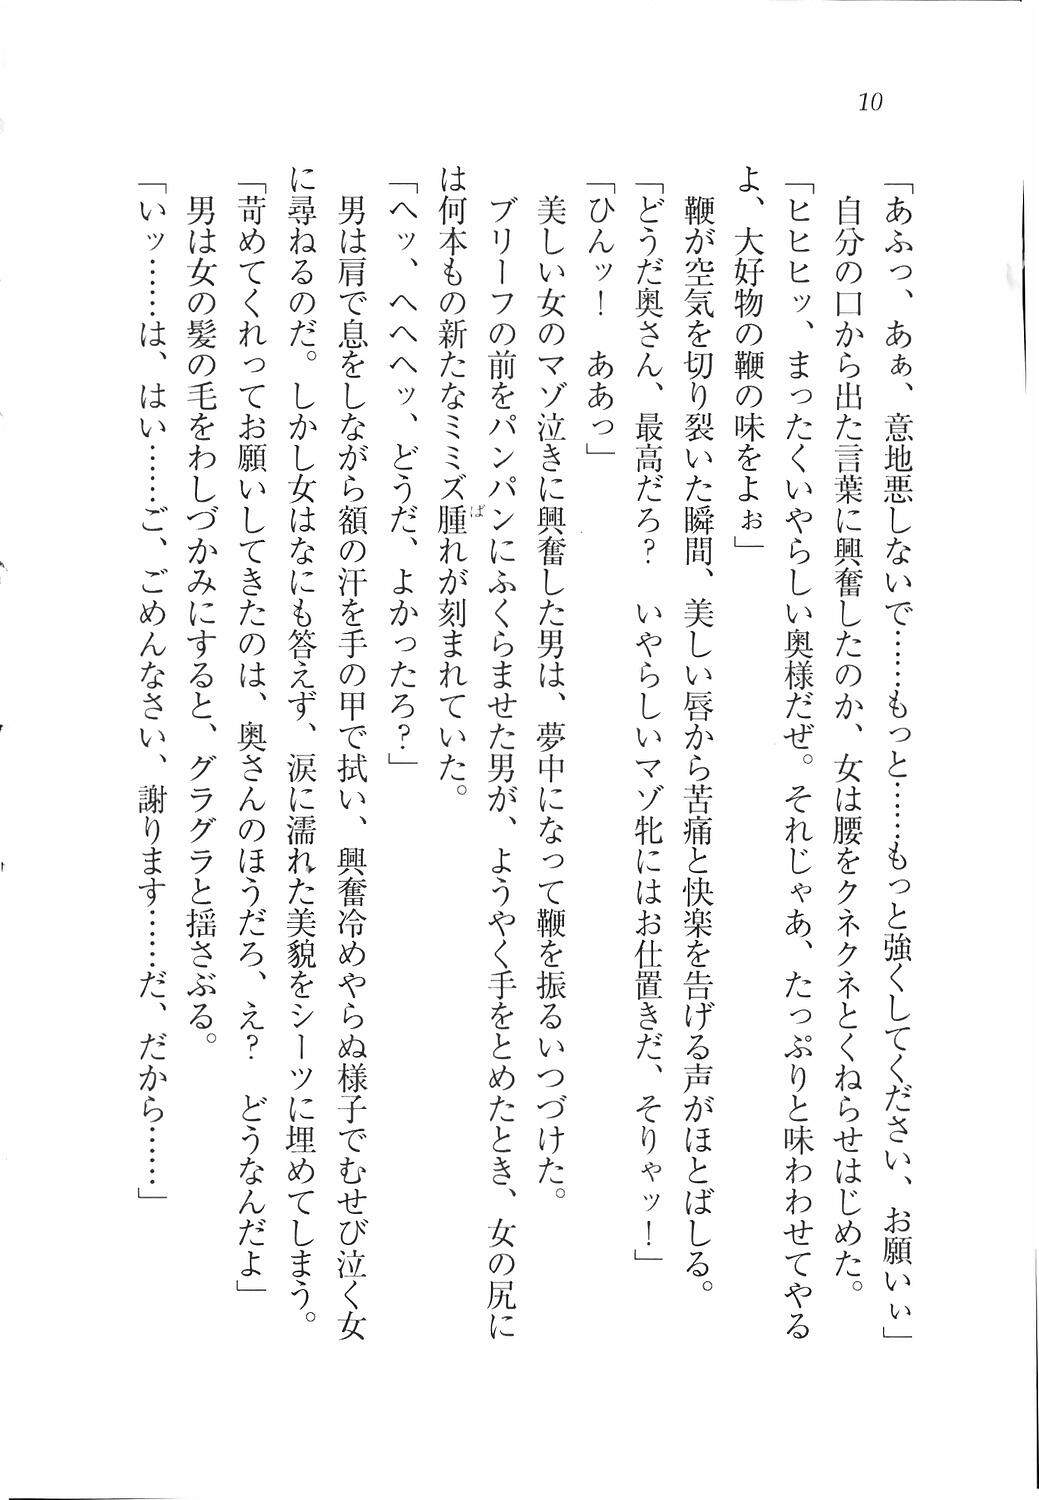 10
「あふっ、あぁ、意地悪しないで……もっと……もっと強くしてください、お願いぃ」
自分の口から出た言葉に興奮したのか、女は腰をクネクネとくねらせはじめた。
「ヒヒヒッ、まったくいやらしい奥様だぜ。それじゃあ、たっぷりと味わわせてやる
よ、大好物の鞭の味をよぉ」
鞭が空気を切り裂いた瞬間、美しい唇から苦痛と快楽を告げる声がほとばしる。
「どうだ奥さん、最高だろ？　いやらしいマゾ牝にはお仕置きだ、そりゃッ！」
「ひんッ！　ああっ」
美しい女のマゾ泣きに興奮した男は、夢中になって鞭を振るいつづけた。
ブリーフの前をパンパンにふくらませた男が、ようやく手をとめたとき、女の尻に
は何本もの新たなミミズ腫ばれが刻まれていた。
「ヘッ、へへへッ、どうだ、よかったろ？」
男は肩で息をしながら額の汗を手の甲で拭い、興奮冷めやらぬ様子でむせび泣く女
に尋ねるのだ。しかし女はなにも答えず、涙に濡れた美貌をシーツに埋めてしまう。
「苛めてくれってお願いしてきたのは、奥さんのほうだろ、え？　どうなんだよ」
男は女の髪の毛をわしづかみにすると、グラグラと揺さぶる。
「いッ……は、はい……ご、ごめんなさい、謝ります……だ、だから……」